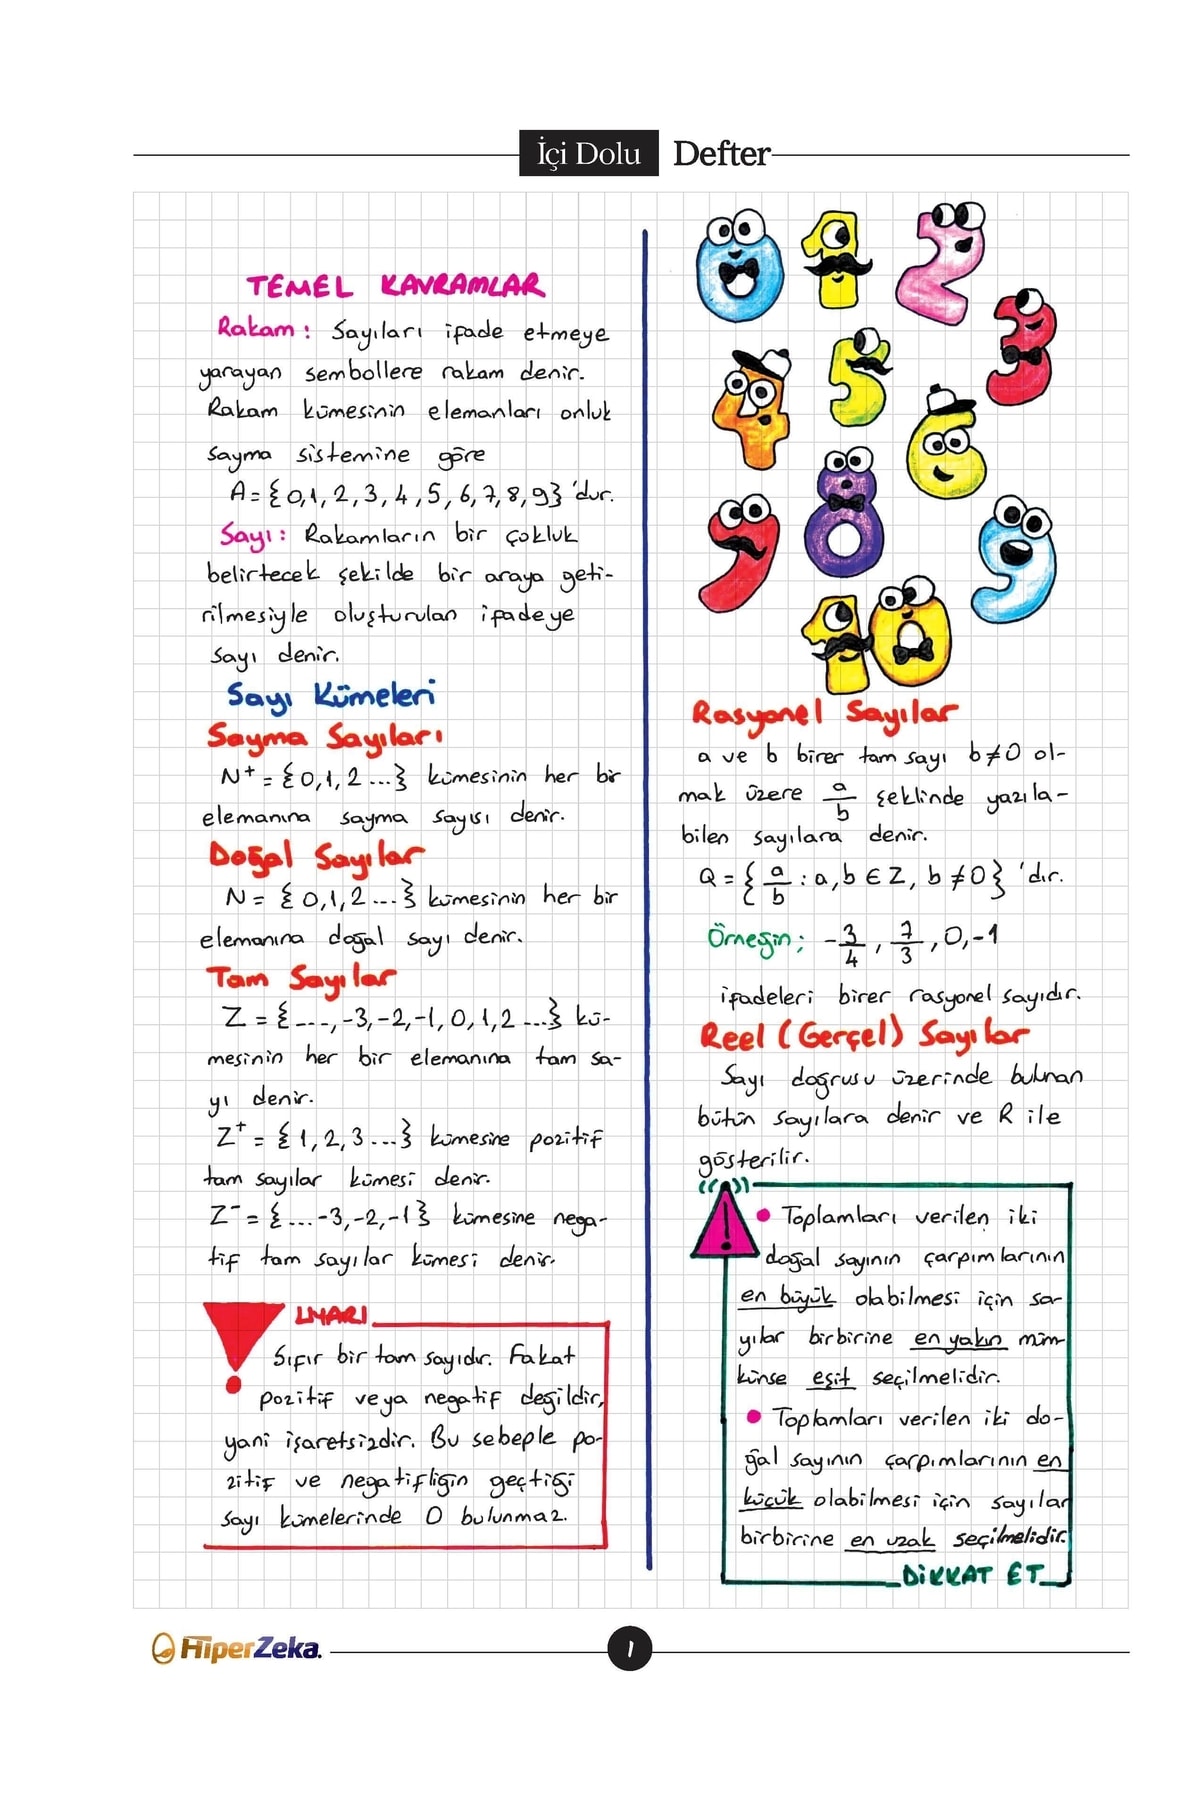 İçi Dolu Defter
TEMEL KAVRAMLAR
Rakam: Sayıları ifade etmeye
yarayan sembollere rakam denir.
Rakam kümesinin elemanları onluk
sayma sistemine göre
A = {0,1,2,3,4,5,6,7,8,9}'dur.
Sayı: Rakamların bir çokluk
belirtecek şekilde bir araya geti-
rilmesiyle oluşturulan ifadeye
sayı denir.
Sayı Kümeleri
Sayma Sayıları
N⁺ = {0,1,2...} kümesinin her bir
elemanına sayma sayısı denir.
Doğal Sayılar
N = {0,1,2...} kümesinin her bir
elemanına doğal sayı denir.
Tam Sayılar
Z = {...,-3,-2,-1,0,1,2...} kü-
mesinin her bir elemanına tam sa-
yı denir.
Z⁺ = {1,2,3...} kümesine pozitif
tam sayılar kümesi denir.
Z⁻ = {...-3,-2,-1} kümesine nega-
tif tam sayılar kümesi denir.
UYARI
Sıfır bir tam sayıdır. Fakat
pozitif veya negatif değildir,
yani işaretsizdir. Bu sebeple po-
zitif ve negatifliğin geçtiği
sayı kümelerinde 0 bulunmaz.
0 1 2
3
4 5
6
7 8 9
10
Rasyonel Sayılar
a ve b birer tam sayı b≠0 ol-
mak üzere a/b şeklinde yazıla-
bilen sayılara denir.
Q = {a/b : a,b ∈ Z, b ≠ 0}'dır.
Örneğin; -3/4, 7/3, 0, -1
ifadeleri birer rasyonel sayıdır.
Reel (Gerçel) Sayılar
Sayı doğrusu üzerinde bulunan
bütün sayılara denir ve R ile
gösterilir.
• Toplamları verilen iki
doğal sayının çarpımlarının
en büyük olabilmesi için sa-
yılar birbirine en yakın müm-
künse eşit seçilmelidir.
• Toplamları verilen iki do-
ğal sayının çarpımlarının en
küçük olabilmesi için sayılar
birbirine en uzak seçilmelidir.
DİKKAT ET
HiperZeka.
1